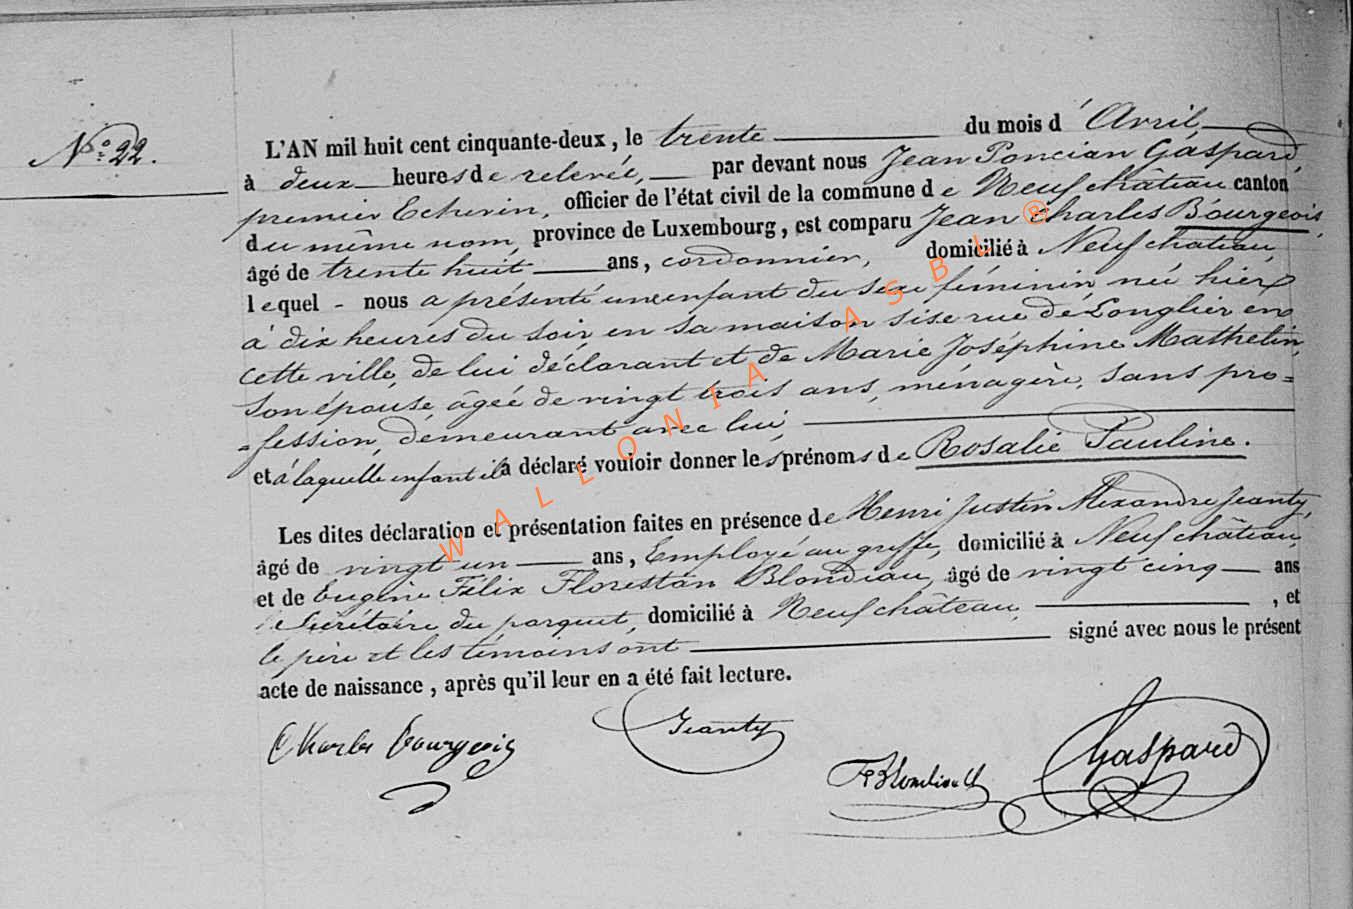 N° 22.
L'AN mil huit cent cinquante-deux, le trente du mois d'Avril
à deux heures de relevée, par devant nous Jean Poncian Gaspard,
premier Echevin, officier de l'état civil de la commune de Neufchâteau canton
du même nom, province de Luxembourg, est comparu Jean Charles Bourgeois,
âgé de trente huit ans, cordonnier, domicilié à Neufchâteau,
lequel - nous a présenté un enfant du sexe féminin né hier
à dix heures du soir en sa maison sise rue de Longlier en
cette ville, de lui déclarant et de Marie Joséphine Mathelin,
son épouse, âgée de vingt trois ans, ménagère, sans pro=
=fession, demeurant avec lui,
et à laquelle enfant il a déclaré vouloir donner les prénoms de Rosalie Pauline.
Les dites déclaration et présentation faites en présence de Henri Justin Alexandre Jeanty,
âgé de vingt un ans, Employé au greffe, domicilié à Neufchâteau
et de Eugène Félix Florestan Blondiau, âgé de vingt cinq ans
Secrétaire du parquet, domicilié à Neufchâteau, , et
le père et les témoins ont signé avec nous le présent
acte de naissance, après qu'il leur en a été fait lecture.
Charles Bourgeois
Jeanty
Gaspard
WALLONIA ASBL ®